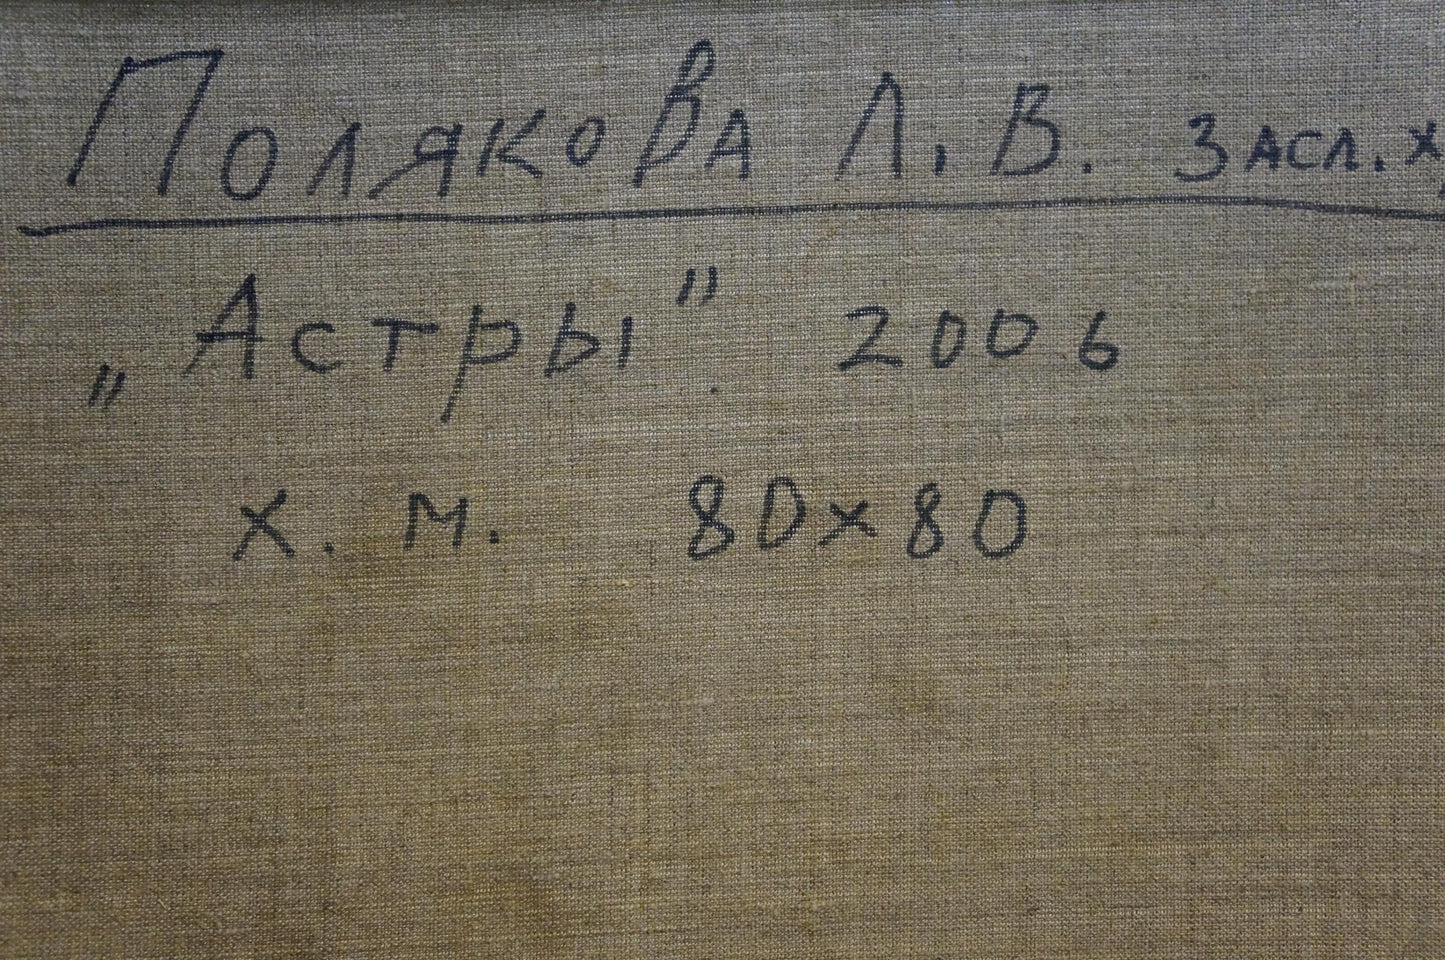 Полякова Л. В. засл. х
„Астры". 2006
х. м. 80х80